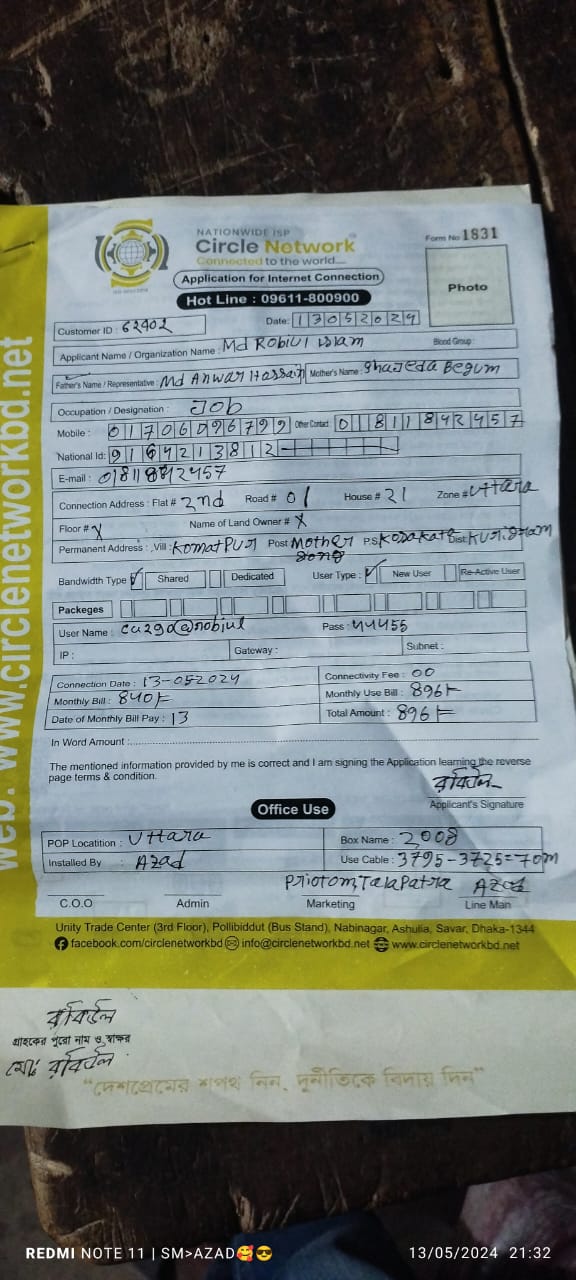 NATIONWIDE ISP
Circle Network
Connected to the world....
Form No 1831
Application for Internet Connection
Photo
Hot Line : 09611-800900
Customer ID : 62402 Date: 13052024
Applicant Name / Organization Name : Md Robiul islam Blood Group :
Father's Name / Representative : Md Anwar Hossain Mother's Name : Shajeda Begum
Occupation / Designation : Job
Mobile : 01706096799 Other Contact : 01811842457
National Id: 9164213812
E-mail : 01811842457
Connection Address : Flat # 2nd Road # 01 House # 21 Zone # Uttara
Floor # X Name of Land Owner # X
Permanent Address : Vill: Komatpur Post Mother P.S Dist: Kurigram
gong
Bandwidth Type ✓ Shared Dedicated User Type : ✓ New User Re-Active User
Packeges
User Name : Pass : 44455
IP : Gateway : Subnet :
Connection Date : 13-052024 Connectivity Fee : 00
Monthly Bill : 840/= Monthly Use Bill : 896/=
Date of Monthly Bill Pay : 13 Total Amount : 896/=
In Word Amount :
The mentioned information provided by me is correct and I am signing the Application learning the reverse
page terms & condition.
রবিউল
Applicant's Signature
Office Use
POP Locatition : Uttara Box Name : 2008
Installed By : Azad Use Cable : 3795-3725=70m
Priotom, TalaPatra Azad
C.O.O Admin Marketing Line Man
Unity Trade Center (3rd Floor), Pollibiddut (Bus Stand), Nabinagar, Ashulia, Savar, Dhaka-1344
facebook.com/circlenetworkbd info@circlenetworkbd.net www.circlenetworkbd.net
web: www.circlenetworkbd.net
রবিউল
গ্রাহকের পুরো নাম ও স্বাক্ষর
মোঃ রবিউল
"দেশপ্রেমের শপথ নিন, দুর্নীতিকে বিদায় দিন"
REDMI NOTE 11 | SM>AZAD🥰😎 13/05/2024 21:32